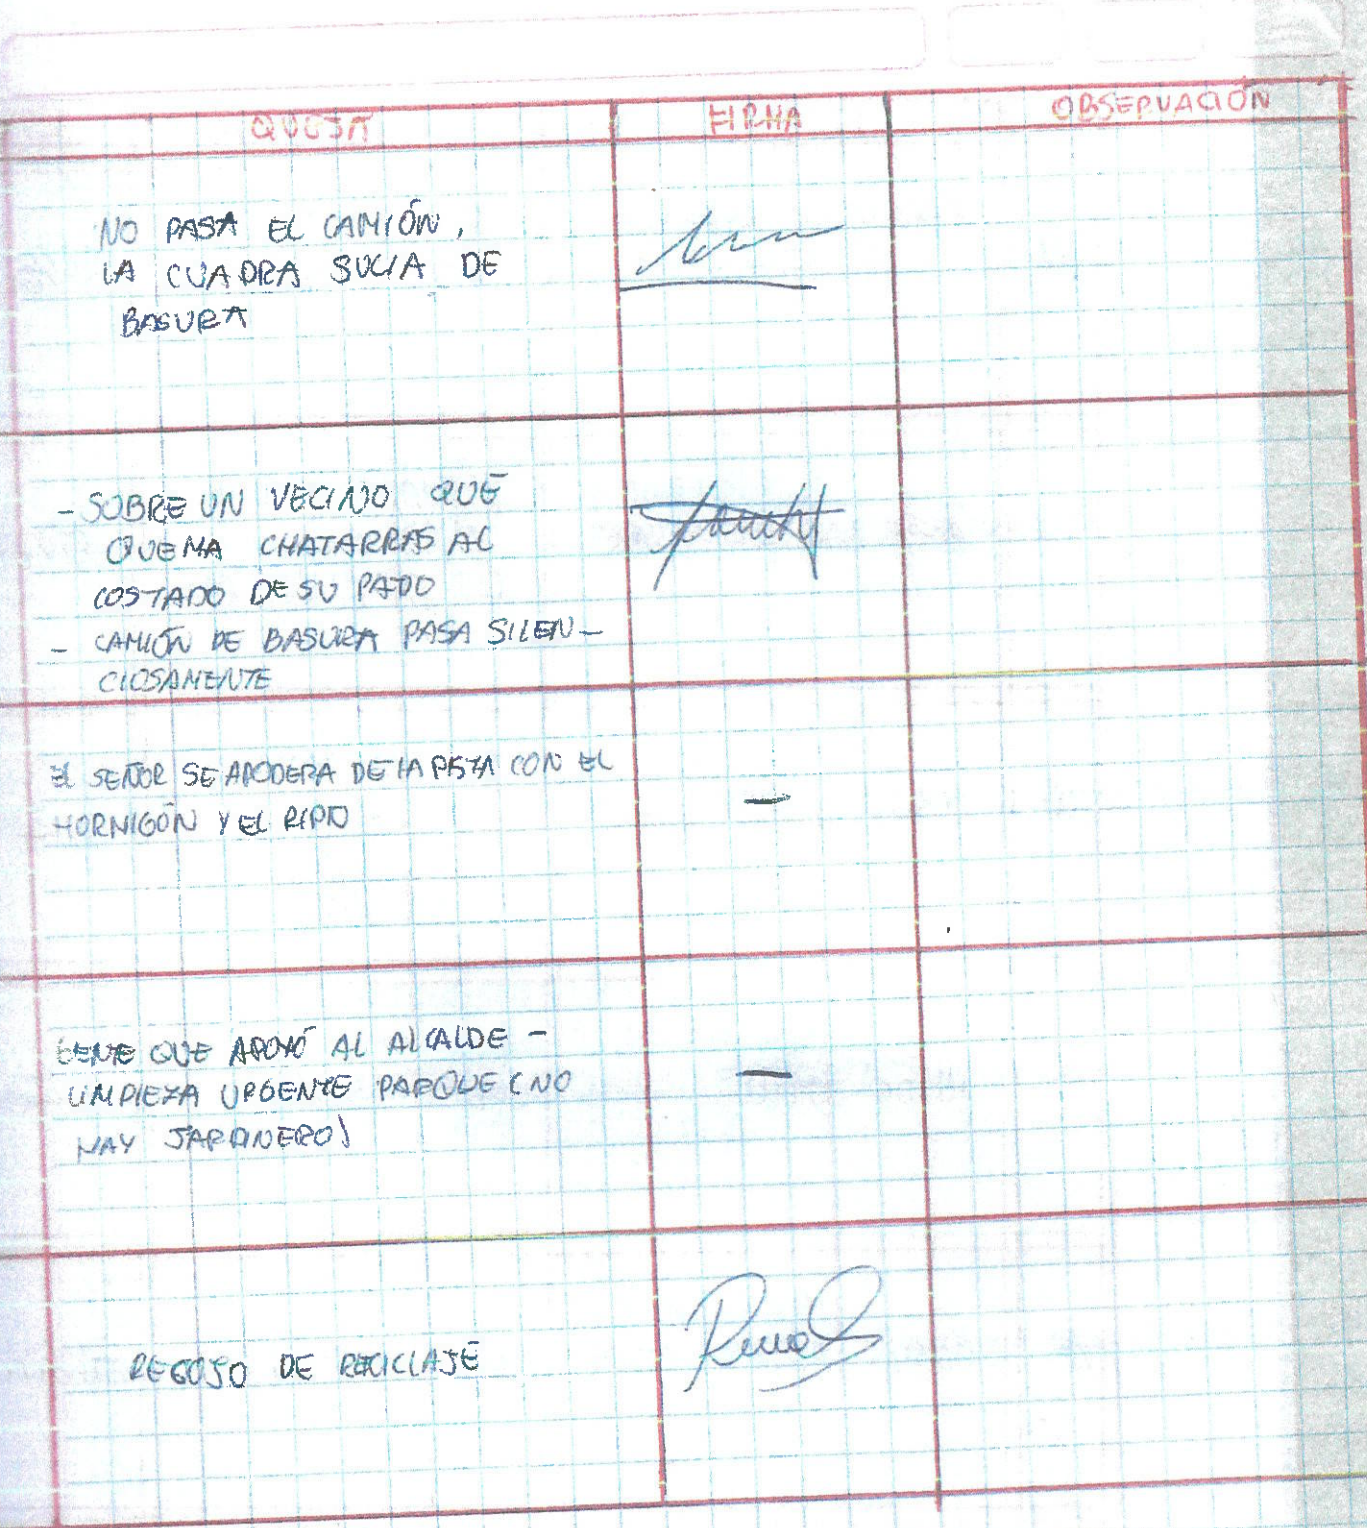 QUEJA FIRMA OBSERVACIÓN
NO PASA EL CAMIÓN,
LA CUADRA SUCIA DE
BASURA
- SOBRE UN VECINO QUE
QUEMA CHATARRAS AL
COSTADO DE SU
- CAMIÓN DE BASURA PASA SILEN-
CIOSAMENTE
EL SEÑOR SE APODERA DE LA PISTA CON EL
HORMIGÓN Y EL RIPIO
GENTE QUE APOYÓ AL ALCALDE -
LIMPIEZA URGENTE PARQUE (NO
HAY JARDINERO)
RECOJO DE RECICLAJE